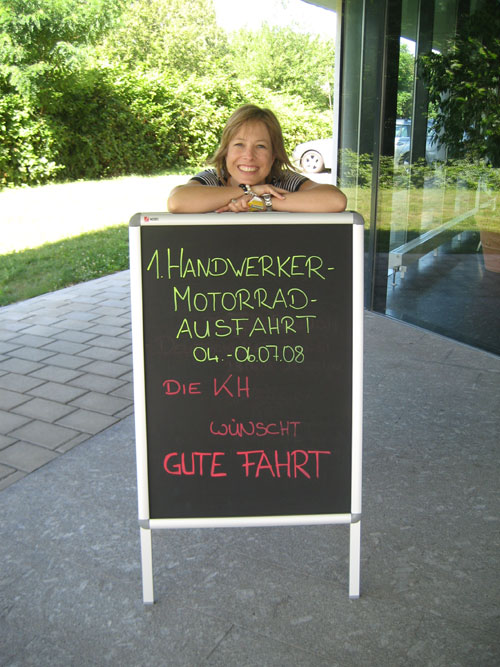 1. HANDWERKER-
MOTORRAD-
AUSFAHRT
04.-06.07.08
DIE KH
WÜNSCHT
GUTE FAHRT